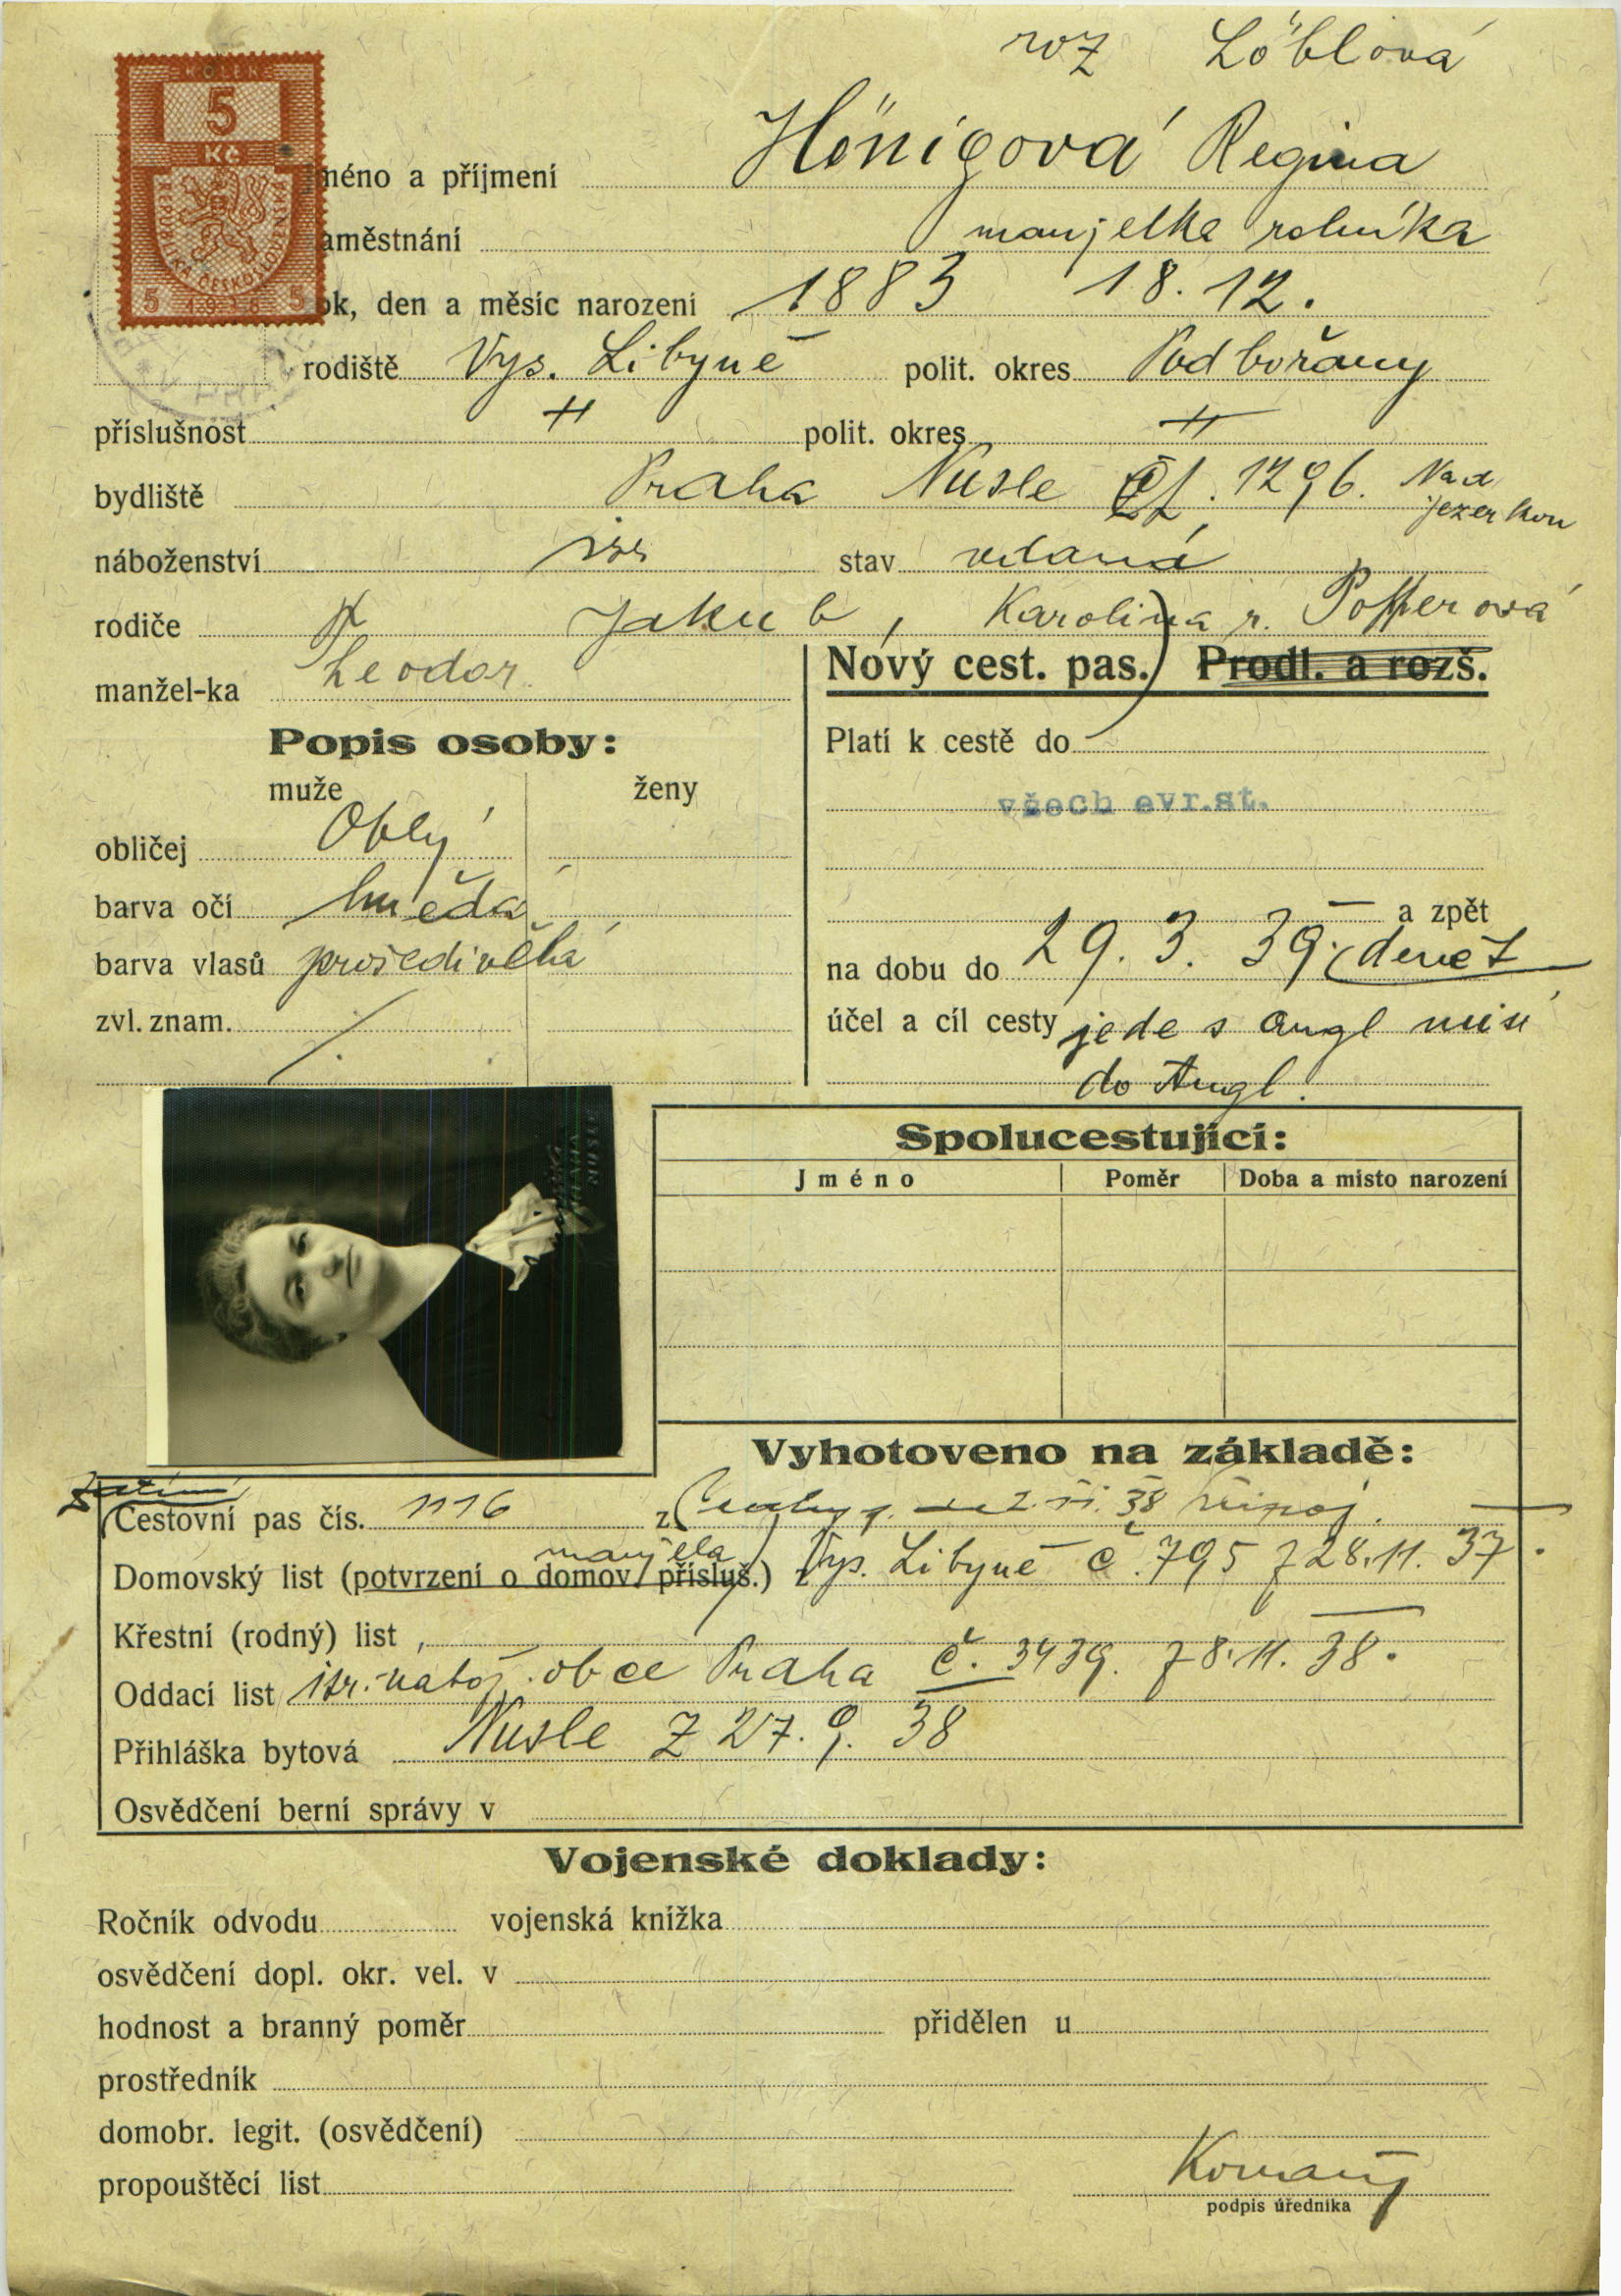 roz Löblová
KOLEK
5
Kč
REPUBLIKA ČESKOSLOVENSKÁ
5 1938 5
méno a příjmení Hönigová Regina
aměstnání manželka rolníka
ok, den a měsíc narození 1883 18. 12.
rodiště Vys. Libyně polit. okres Podbořany
příslušnost 〃 polit. okres 〃
bydliště Praha Nusle čp. 1296. Nad
jezerkou
náboženství isr stav vdaná
rodiče Jakub, Karolina r. Popperová
manžel-ka Theodor
Nový cest. pas. Prodl. a rozš.
Popis osoby:
muže ženy
obličej Oblý
barva očí hnědá
barva vlasů prošedivělá
zvl. znam. /.
Platí k cestě do
všech evr.st.
a zpět
na dobu do 29. 3. 39. (devět
účel a cíl cesty jede s angl misí
do Angl.
Spolucestující:
Jméno Poměr Doba a místo narození
Vyhotoveno na základě:
Cestovní pas čís. 1116 z 38
manžela
Domovský list (potvrzení o domov. přísluš.) z Vys. Libyně č. 795 z 28.11. 37.
Křestní (rodný) list
Oddací list isr. nábož. obce Praha č. 3439. z 8.11. 38.
Přihláška bytová Nusle z 27. 9. 38
Osvědčení berní správy v
Vojenské doklady:
Ročník odvodu vojenská knížka
osvědčení dopl. okr. vel. v
hodnost a branný poměr přidělen u
prostředník
domobr. legit. (osvědčení)
propouštěcí list
podpis úředníka